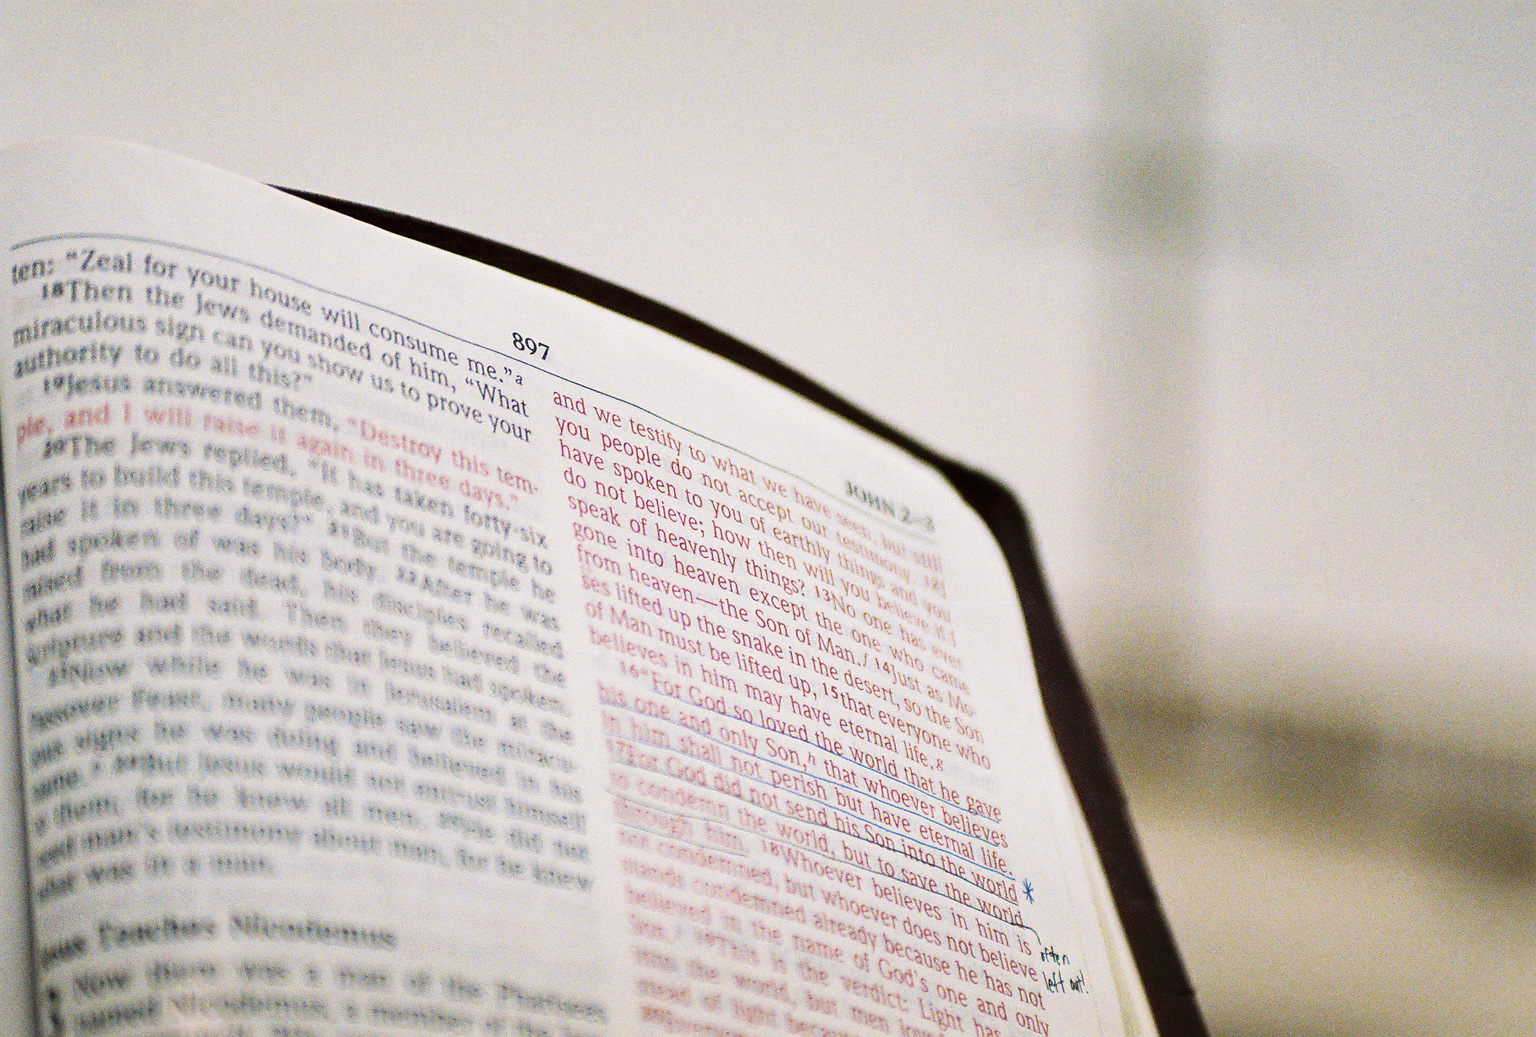 897
JOHN 2–3
ten: "Zeal for your house will consume me."a
18Then the Jews demanded of him, "What
miraculous sign can you show us to prove your
authority to do all this?"
19Jesus answered them, "Destroy this tem-
ple, and I will raise it again in three days."
20The Jews replied, "It has taken forty-six
years to build this temple, and you are going to
raise it in three days?" 21But the temple he
had spoken of was his body. 22After he was
raised from the dead, his disciples recalled
what he had said. Then they believed the
Scripture and the words that Jesus had spoken.
23Now while he was in Jerusalem at the
Passover Feast, many people saw the miracu-
ous signs he was doing and believed in his
name. 24But Jesus would not entrust himself
them, for he knew all men. did not
need man's testimony about man, for he knew
what was in a man.
Teaches Nicodemus
Now there was a man of the Pharisees
named Nicodemus, a member of the
and we testify to what we have seen, but still
you people do not accept our testimony. 12I
have spoken to you of earthly things and you
do not believe; how then will you believe if I
speak of heavenly things? 13No one has ever
gone into heaven except the one who came
from heaven—the Son of Man.f 14Just as Mo-
ses lifted up the snake in the desert, so the Son
of Man must be lifted up, 15that everyone who
believes in him may have eternal life.g
16"For God so loved the world that he gave
his one and only Son,h that whoever believes
in him shall not perish but have eternal life.
17For God did not send his Son into the world
to condemn the world, but to save the world
through him. 18Whoever believes in him is
not condemned, but whoever does not believe
stands condemned already because he has not
believed in the name of God's one and only
Son. 19This is the verdict: Light has
into the world, but men loved
stead of light because
*
often
left out!